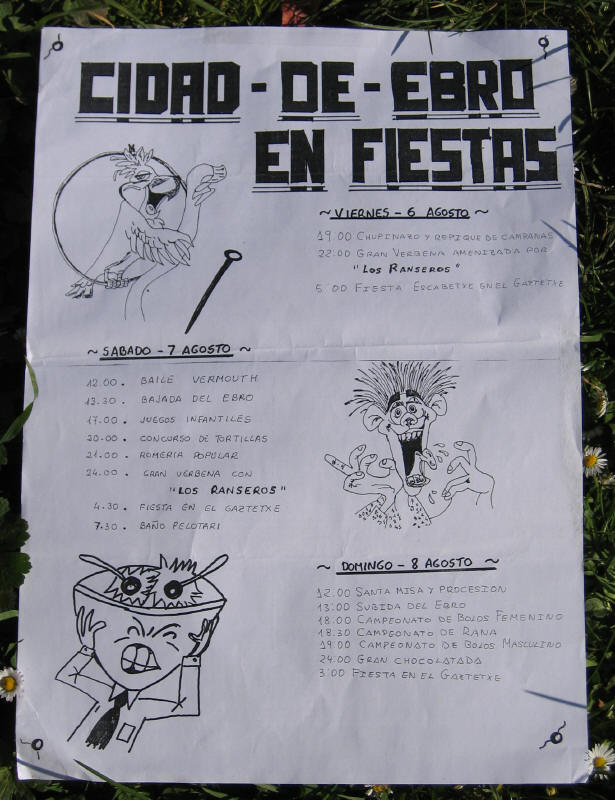 CIDAD-DE-EBRO
EN FIESTAS
~ VIERNES - 6 AGOSTO ~
19:00 CHUPINAZO Y REPIQUE DE CAMPANAS
22:00 GRAN VERBENA AMENIZADA POR
"LOS RANSEROS"
5:00 FIESTA ESCABETXE EN EL GAZTETXE
~ SABADO - 7 AGOSTO ~
12.00. BAILE VERMOUTH
13.30. BAJADA DEL EBRO
17.00. JUEGOS INFANTILES
20.00. CONCURSO DE TORTILLAS
21.00. ROMERIA POPULAR
24.00. GRAN VERBENA CON
"LOS RANSEROS"
4.30. FIESTA EN EL GAZTETXE
7.30. BAÑO PELOTARI
~ DOMINGO - 8 AGOSTO ~
12:00 SANTA MISA Y PROCESION
13:00 SUBIDA DEL EBRO
18:00 CAMPEONATO DE BOLOS FEMENINO
18:30 CAMPEONATO DE RANA
19:00 CAMPEONATO DE BOLOS MASCULINO
24:00 GRAN CHOCOLATADA
3:00 FIESTA EN EL GAZTETXE